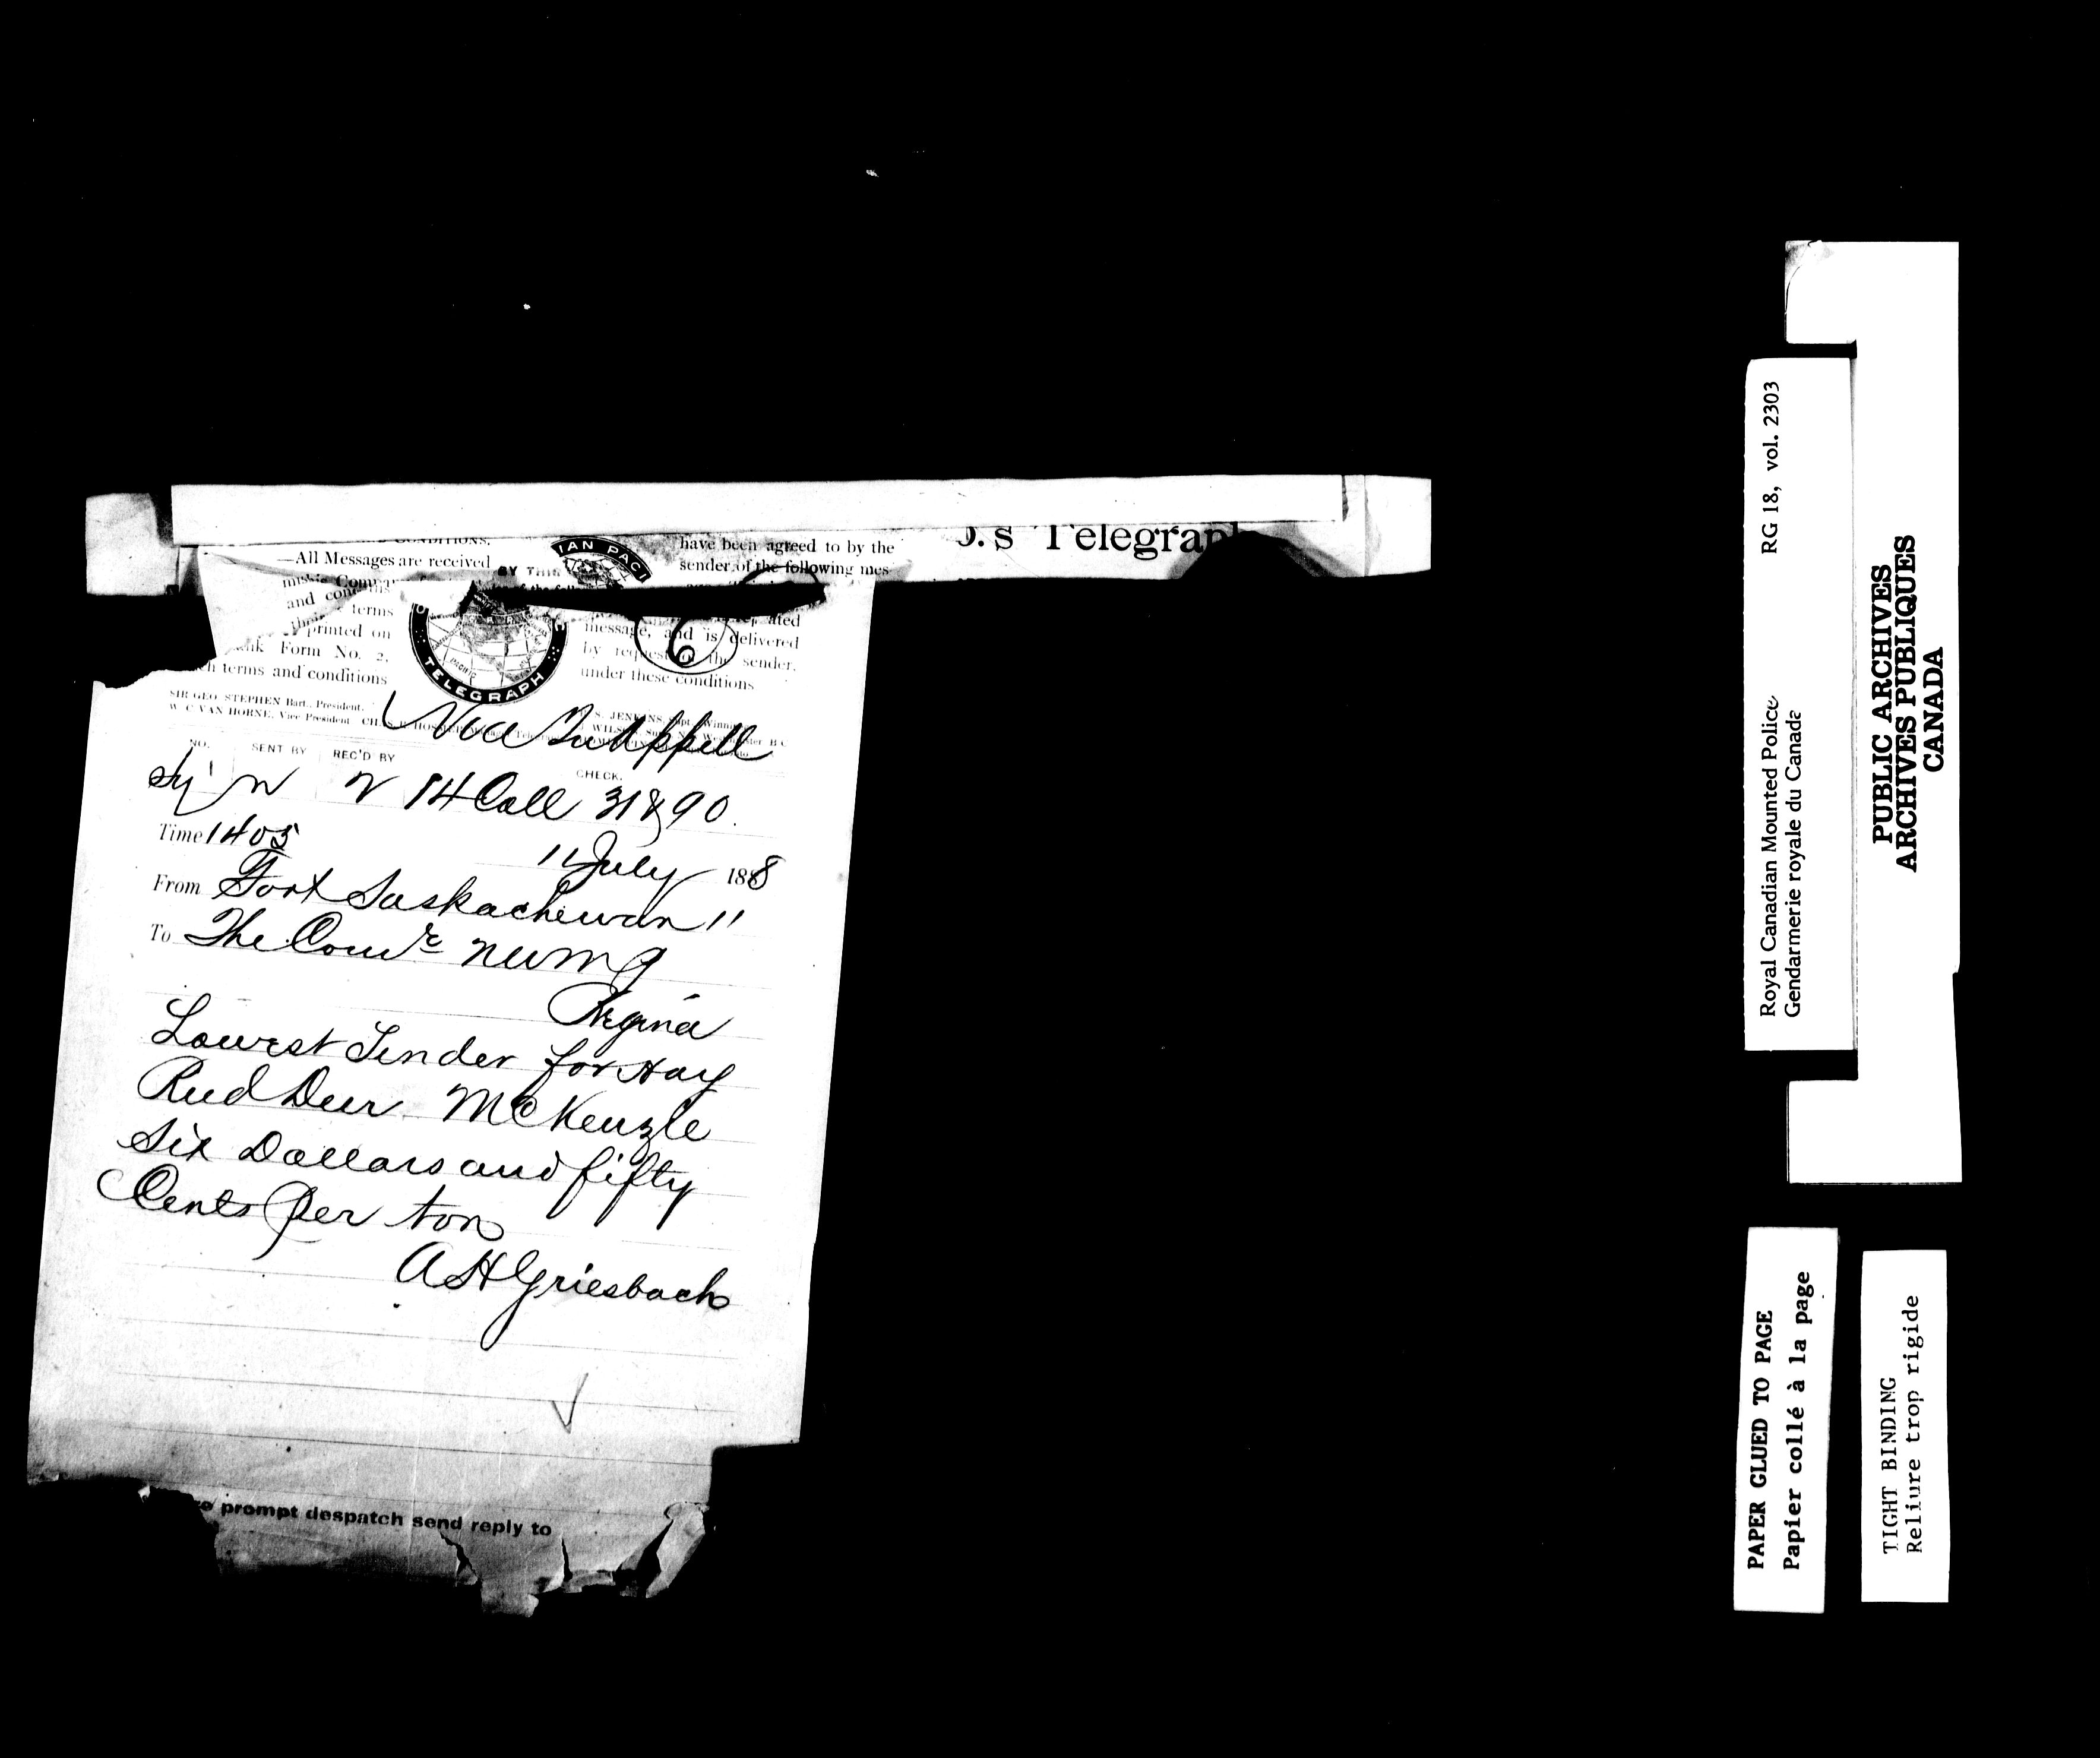 O.'s Telegraph
CONDITIONS.
—All Messages are received
have been agreed to by the
BY THIS
sender of the following mes-
and
terms
printed on
Form No. 2.
terms and conditions
IAN PACI
TELEGRAPH
ated
message, and is delivered
by request of the sender.
under these conditions
6
SIR GEO. STEPHEN Bart., President.
W. C. VAN HORNE, Vice President
JENKINS, Supt., Winn
Via Qu'Appell
NO. SENT BY REC'D BY CHECK.
14 Coll 31 & 90
Time 1405
11 July 1888
From Fort Saskachewan 11
To The Comr NWMP
Regina
Lowest Tender for Hay
Red Deer McKenzie
Six Dollars and fifty
Cents per ton
A H Griesbach
prompt despatch send reply to
RG 18, vol. 2303
Royal Canadian Mounted Police
Gendarmerie royale du Canada
PUBLIC ARCHIVES
ARCHIVES PUBLIQUES
CANADA
PAPER GLUED TO PAGE
Papier collé à la page
TIGHT BINDING
Reliure trop rigide